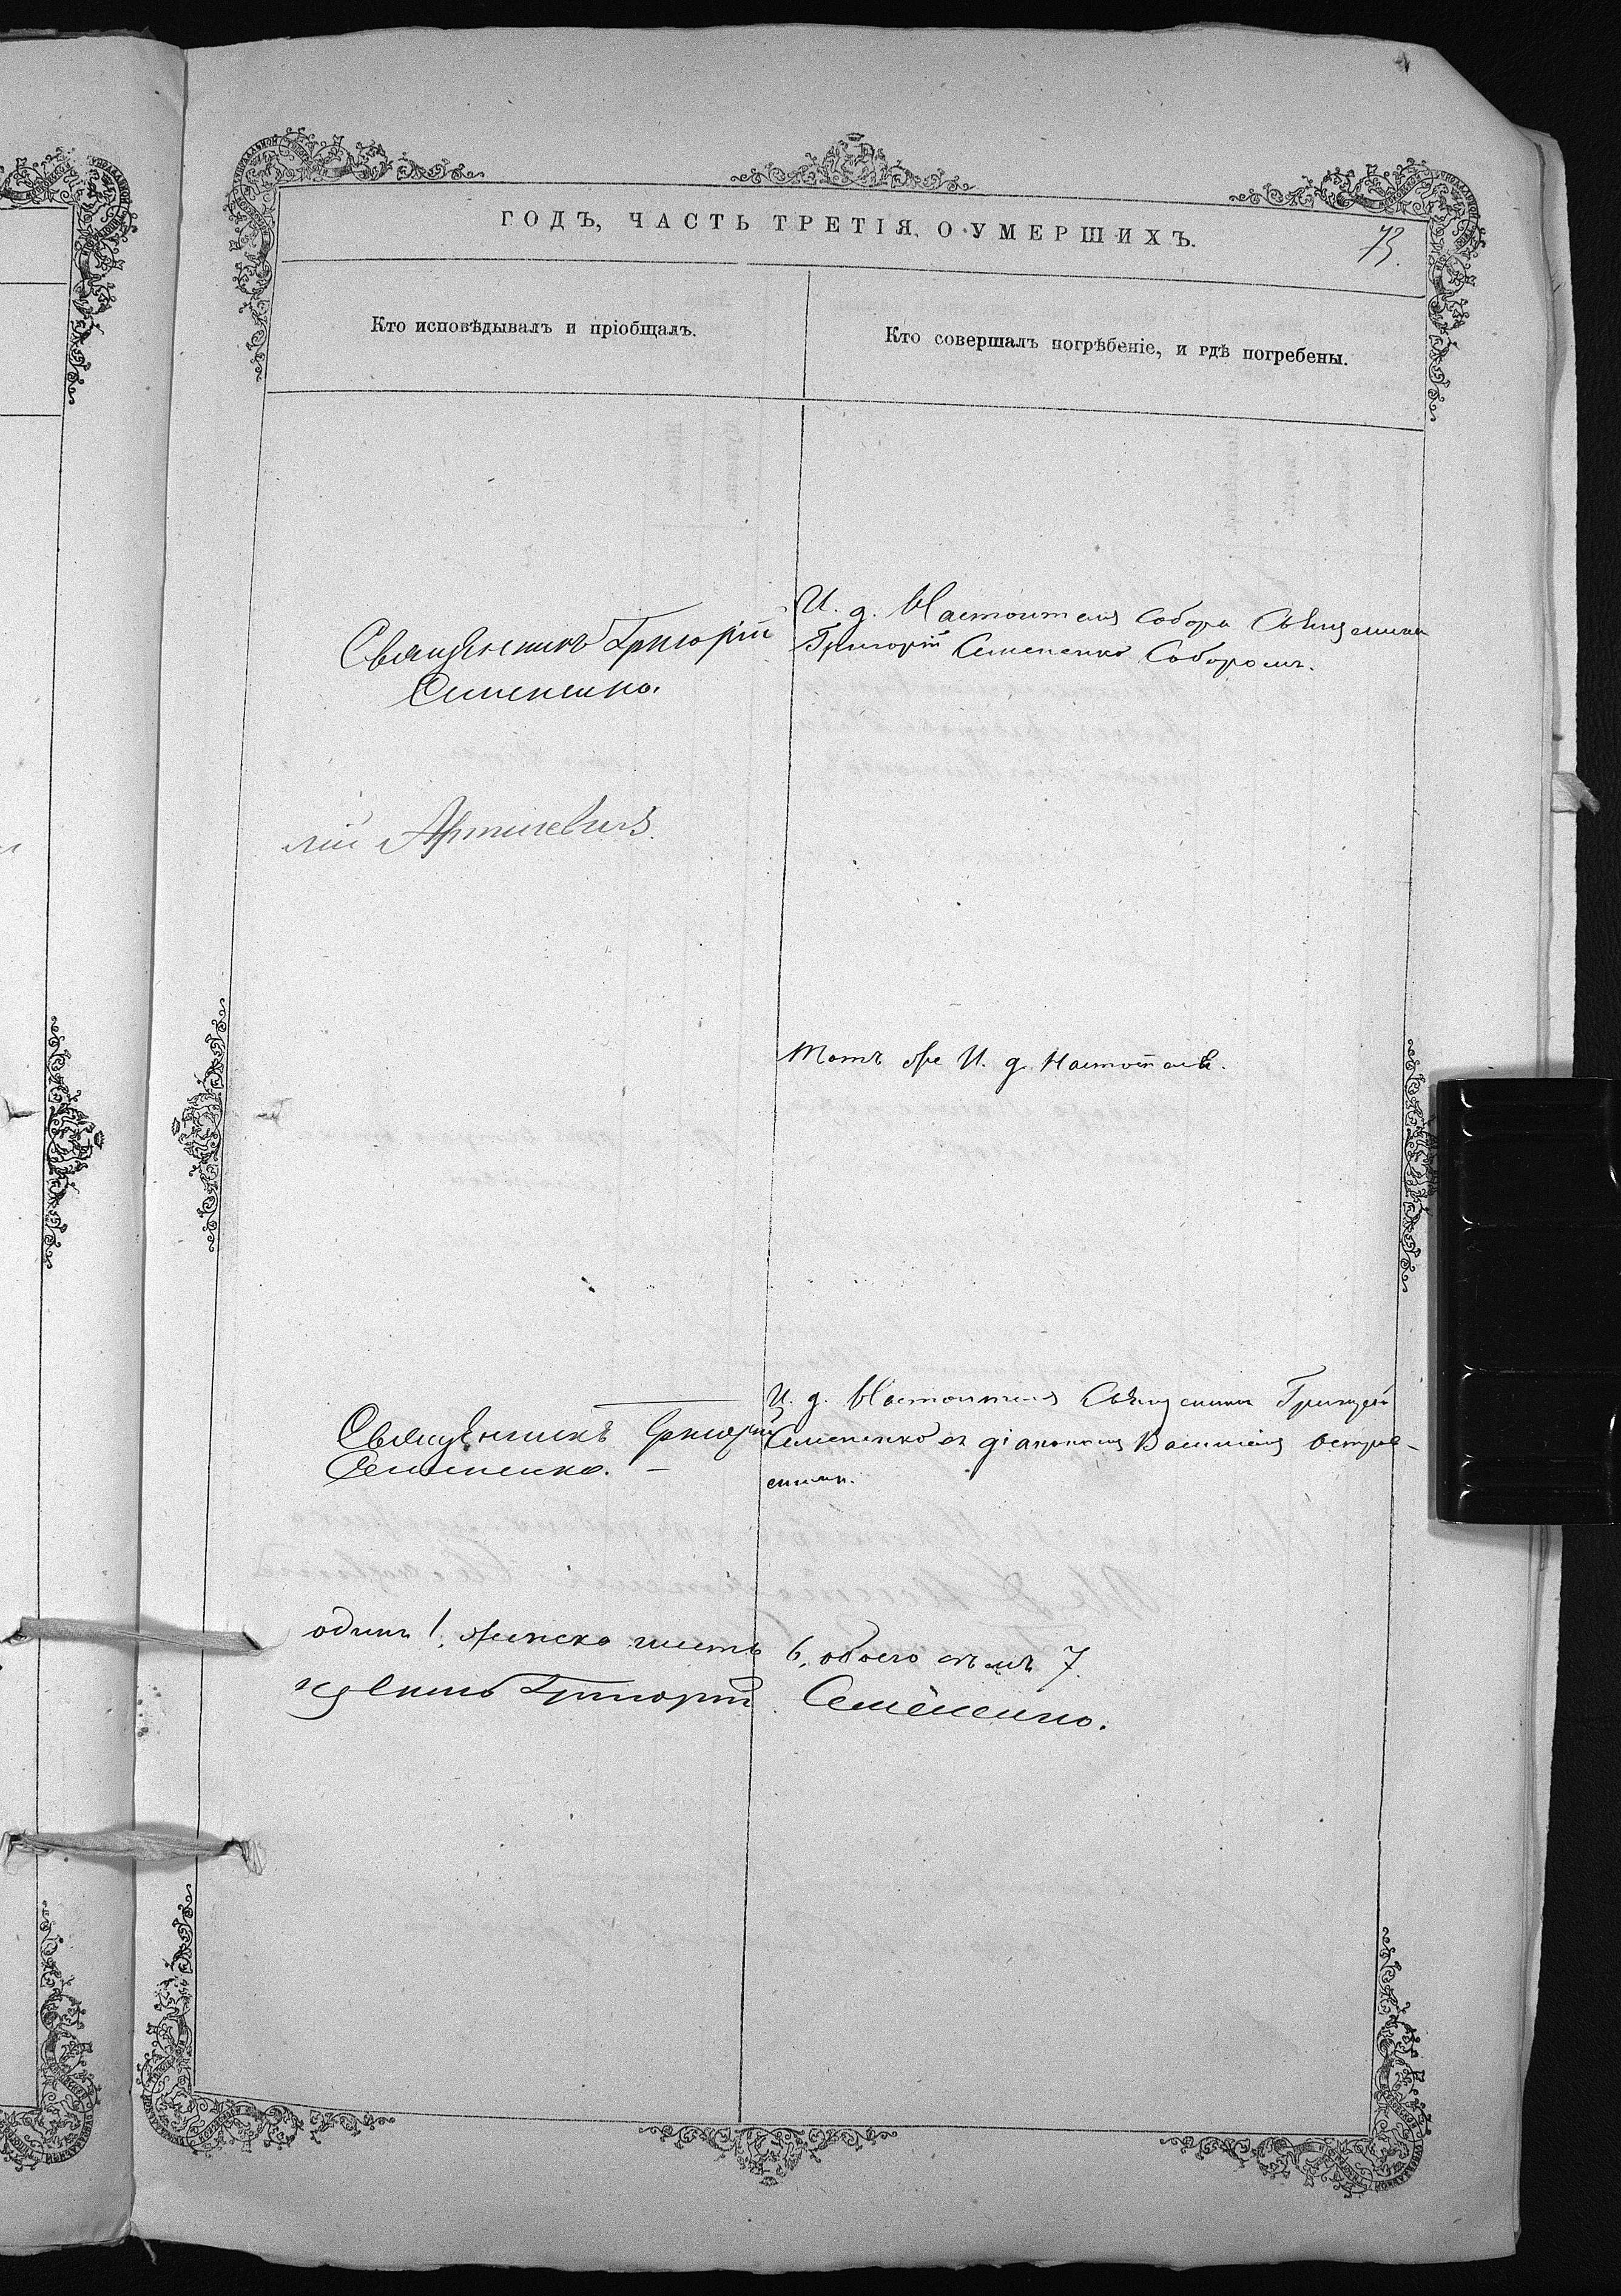 ГОДЪ, ЧАСТЬ ТРЕТІЯ, О УМЕРШИХЪ.
73.
Кто исповѣдывалъ и пріобщалъ.
Кто совершалъ погрѣбеніе, и гдѣ погребены.
Священникъ Григорій
Семененко.
И. д. Настоителя Собора Священникъ
Григорій Семененко Соборомъ.
лій
Тотъ же И. д. Настоятель.
Священникъ Григорій
Семененко.
И. д. Настоителя Священникъ Григорій
Семененко съ діакономъ Василіемъ Остров-
скимъ.
одинъ 1, женска шесть 6, обоего семь 7.
щенникъ Григорій Семененко.